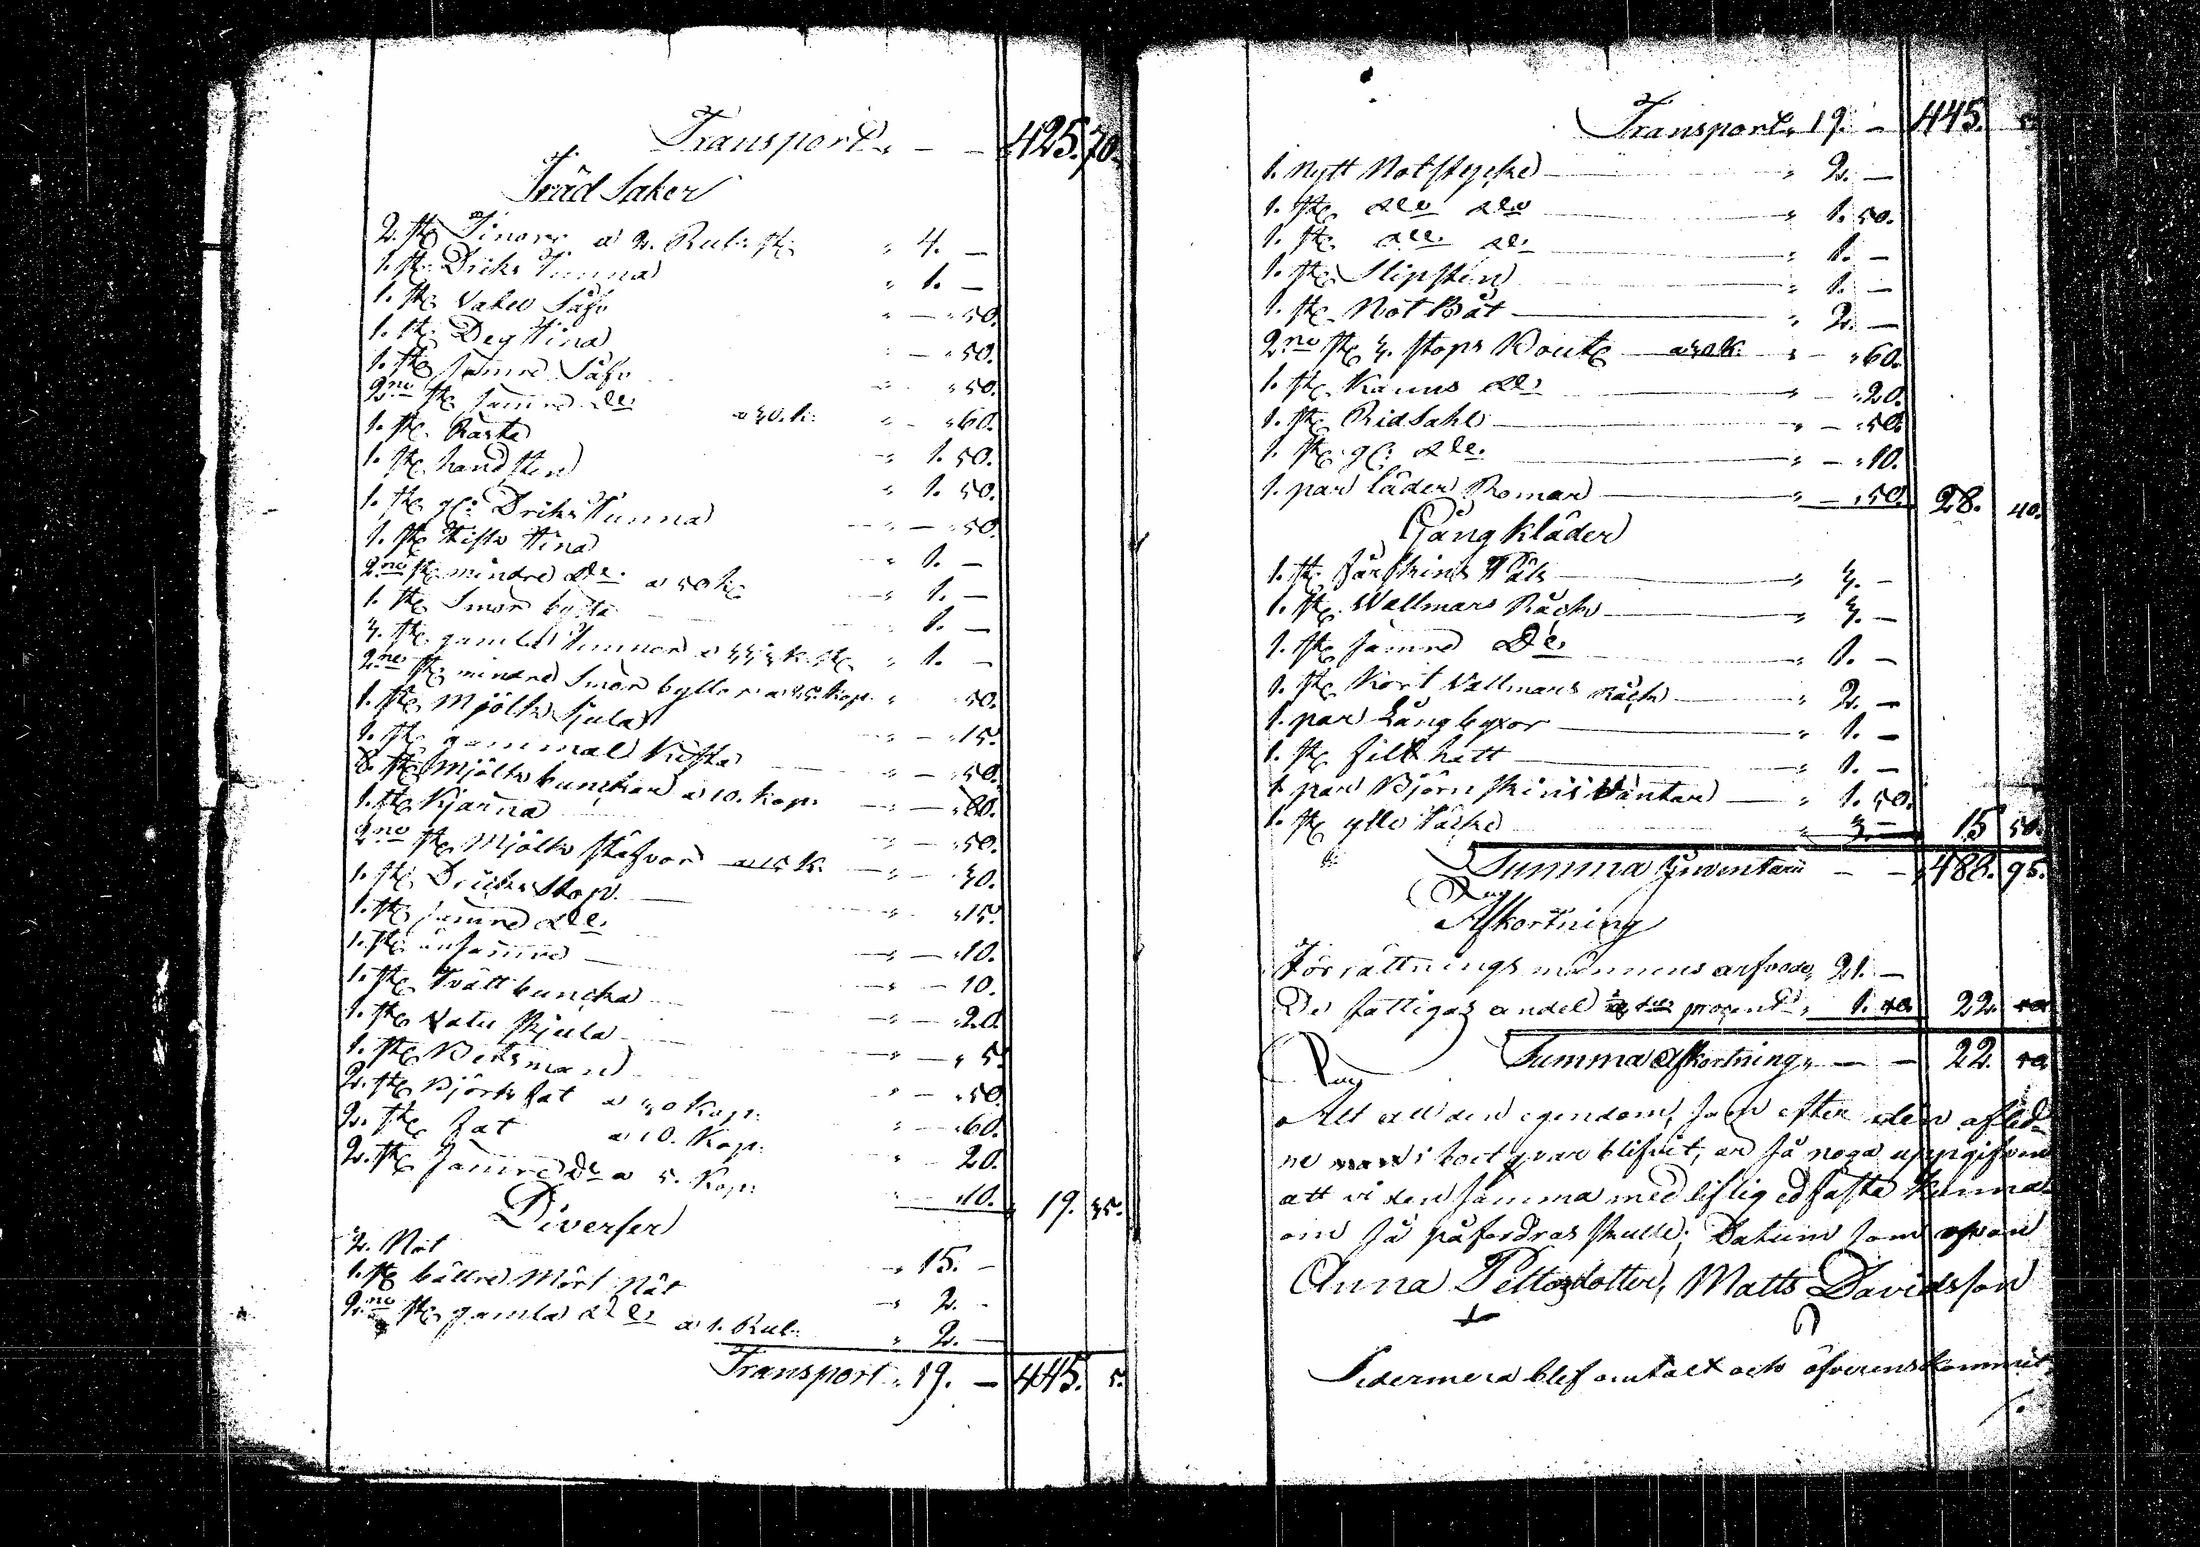 Transport „ — — 425. 70.
Träd Saker
2. st. Tinor a 2. Rub: st: „ 4. —
1. st. Driks Tunna „ 1. —
1. st. Vatu Såfv „ — „ 50.
1. st. Deg Tina „ — „ 50.
1. st. sämre Såfv „ — „ 50.
2.no st. sämre do a 30. k: „ — „ 60.
1. st. „ 1. 50.
1. st. handsten „ 1. 50.
1. st. gl: Driks Tunna „ — „ 50.
1. st. Tina „ 1. —
2.no st. mindre do a 50 k. „ 1. —
1. st. Smör bytta „ 1. —
3. st. gamla Tunnor a 33⅓ k. st. „ 1. —
2.ne st. mindre Smör byttor a 25. kop. „ 50.
1. st. Mjölk Skjula „ — „ 15.
1. st. gammal Kista „ — „ 50.
8. st. Mjölk bunckar a 10. kop. „ — „ 80.
1. st. Kjärna „ — „ 50.
2.no st. Mjölk stäfvor a 15 k. „ — „ 30.
1. st. Dricks Stop „ — „ 15.
1. st. sämre do „ — „ 10.
1. st. än sämre „ — „ 10.
1. st. Tvätt buncka „ — „ 20.
1. st. Vatu Skjula „ — „ 5.
1. st. Betsman „ — „ 50.
2. st. Björk fat a 30 Kop. „ — „ 60.
2. st. fat a 10. Kop. „ 20.
2. st. Sämre do a 5. Kop: „ — „ 10. „ 19. 35.
Diverser
2. Not „ 15. —
1. st. bättre Mört Nät „ 2. —
2.no st. gamla do a 1. Rub: „ 2. —
Transport „ 19. — 445. 5.
Transport „ 19. — 445. 5.
1. nytt Notstycke — „ 2. —
1. st. do do — „ 1. 50.
1. st. do do — „ 1. —
1. st. Slipsten — „ 1. —
1. st. Not Båt — „ 2. —
2.no st. 3. stops Bout. a 30 k. „ — „ 60.
1. st. Kanns do „ — „ 20.
1. st. Rid Sahl — „ — „ 50.
1. st. gl: do — „ — „ 10.
1. par läder Romar — „ — „ 50. 28. 40.
Gång kläder
1. st. fårskins Päls — „ 3. —
1. st. Wallmars Råck — „ 3. —
1. st. sämre Do — „ 1. —
1. st. Kort Vallmars Råck — „ 2. —
1. par Långbyxor — „ 1. —
1. st. filt hatt — „ 1. —
1. par Björnskins Vantar — „ 1. 50.
1. st. ylle Täcke „ 3. — 15 50.
Summa Inventarii — — „ 488. 95.
Afkortning
Förrättnings männens arfvode „ 21. —
De fattigas andel procent „ 1. 22.
Summa Afkortning „ — — 22.
Att all den egendom, som efter den aflid-
ne i boet qvar blifvit, är så noga uppgifven
att vi den samma med liflig ed fästa kunna
om så påfordras skulle; Datum som ofvan
Anna Pettersdotter, Matts Davidsson
Sedermera blef omtalt och öfverenskommit,